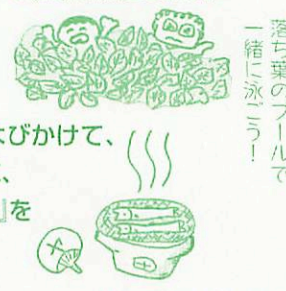 落ち葉のプールで
一緒に泳ごう！
びかけて、
、
』を